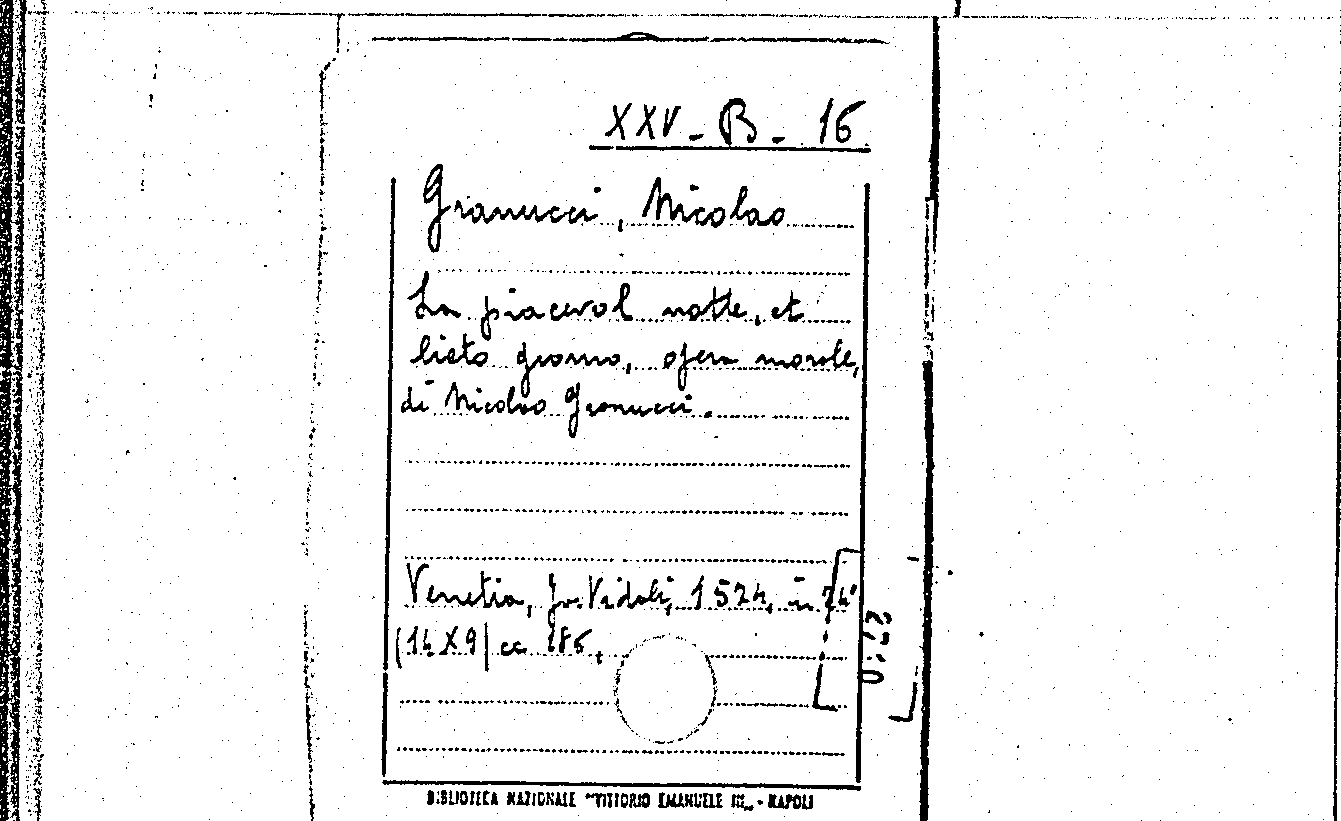 XXV - B - 16
Granucci, Nicolao
La piacevol notte, et
lieto giorno, opera morale,
di Nicolao Granucci.
Venetia, Jac. Vidali, 1574, in 24°
(14 X 9) cc 186.
BIBLIOTECA NAZIONALE "VITTORIO EMANUELE III„ - NAPOLI